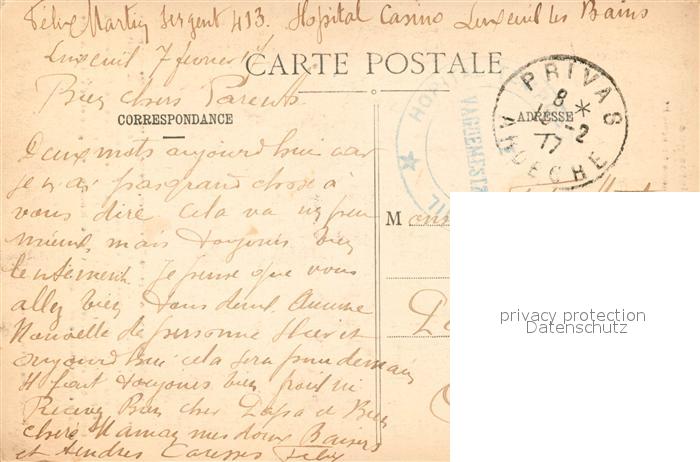 Félix Martin Sergent 413. Hopital Casino Luxeuil les Bains
Luxeuil 7 février
CARTE POSTALE
Bien chers Parents
CORRESPONDANCE
ADRESSE
PRIVAS
8 * -2
17
ARDECHE
VAGUEMESTRE
Deux mots aujourd'hui car
je n'ai pas grand chose à
vous dire Cela va un peu
mieux, mais toujours bien
lentement. Je pense que vous
allez bien tous deux. Aucune
Nouvelle de personne Hier et
aujourd'hui cela sera pour demain
Il fait toujours bien froid ici
Recevez Bien cher Papa et Bien
chère Maman mes doux Baisers
et tendres Caresses Félix
M
privacy protection
Datenschutz